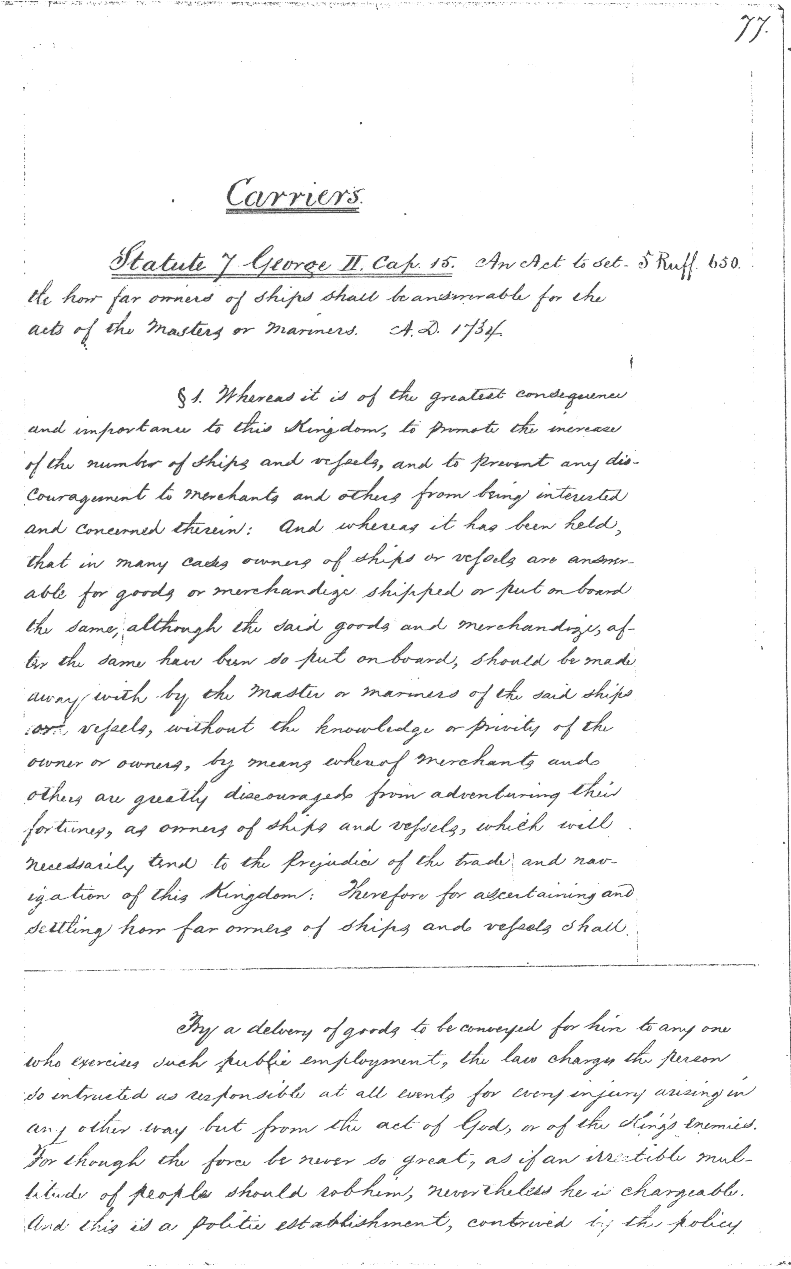 77.
Carriers.
Statute 7 George II. Cap. 15. An Act to set- 5 Ruff. 650.
tle how far owners of ships shall be answerable for the
acts of the Masters or Mariners. A.D. 1734.
§1. Whereas it is of the greatest consequence
and importance to this Kingdom, to promote the increase
of the number of ships and vessels, and to prevent any dis-
couragement to merchants and others from being interested
and concerned therein: And whereas it has been held,
that in many cases owners of ships or vessels are answer-
able for goods or merchandize shipped or put on board
the same, although the said goods and merchandize, af-
ter the same have been so put on board, should be made
away with by the Master or mariners of the said ships
or vessels, without the knowledge or privity of the
owner or owners, by means whereof merchants and
others are greatly discouraged from adventuring their
fortunes, as owners of ships and vessels, which will
necessarily tend to the prejudice of the trade and nav-
igation of this Kingdom: Therefore for ascertaining and
settling how far owners of ships and vessels shall
By a delivery of goods to be conveyed for him to any one
who exercises such public employment, the law charges the person
so intrusted as responsible at all events for every injury arising in
any other way but from the act of God, or of the King's enemies.
For though the force be never so great, as if an irresistible mul-
titude of people should rob him, nevertheless he is chargeable.
And this is a politic establishment, contrived by the policy